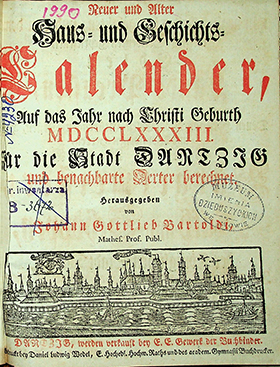 1990
Neuer und Alter
Haus- und Geschichts-
Calender,
Auf das Jahr nach Christi Geburth
MDCCLXXXIII
Für die Stadt DANTZIG
und benachbarte Oerter berechnet
r. inwentarza
B - 
Herausgegeben
von
Johann Gottlieb Bartoldi
Mathes. Prof. Publ.
MUZEUM
IMIENIA
DZIEDUSZYCKICH
DANTZIG, werden verkauft bey E. E. Gewerk der Buchbinder.
Gedruckt bey Daniel Ludwig Wedel, E. Hochedl. Hochw. Raths und des academ. Gymnasii Buchdrucker.